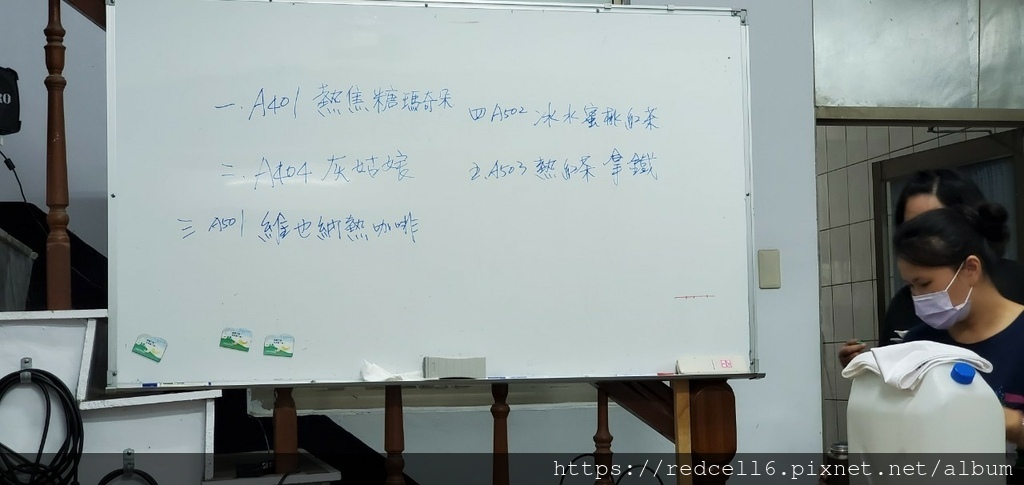 一. A401 熱焦糖瑪奇朵
二. A404 灰姑娘
三 A501 維也納熱咖啡
四 A502 冰水蜜桃紅茶
五. A503 熱紅茶拿鐵
RO
https://redcell6.pixnet.net/album